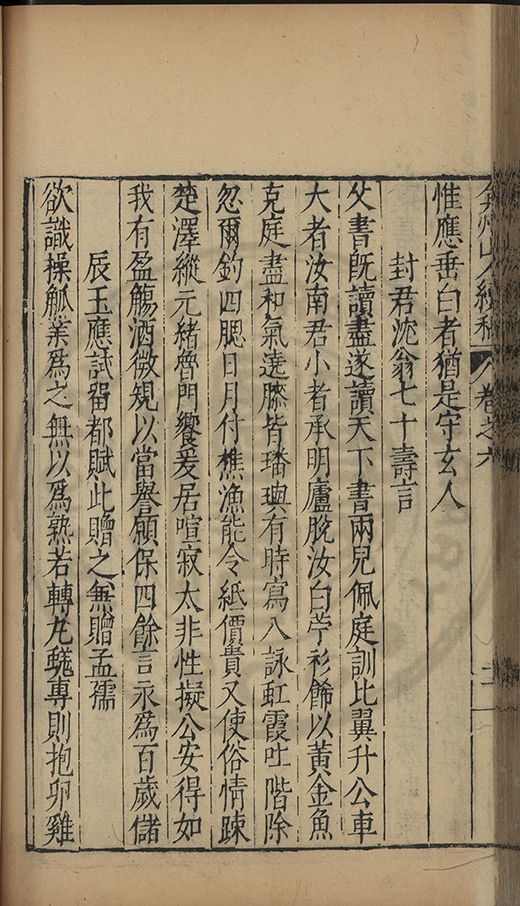 弇州山人續稿 卷之六 十一
惟應垂白者猶是守玄人
封君沈翁七十壽言
父書旣讀盡遂讀天下書兩兒佩庭訓比翼升公車
大者汝南君小者承明廬脫汝白苧衫飾以黃金魚
克庭盡和氣遶膝皆璠璵有時寫八詠虹霞吐階除
忽爾釣四腮日月付樵漁能令紙價貴又使俗情踈
楚澤縱元緒魯門饗爰居喧寂太非性擬公安得如
我有盈觴酒微規以當譽願保四餘言永爲百歲儲
辰玉應試留都賦此贈之無贈孟孺
欲識操觚業爲之無以爲熟若轉丸䖼專則抱卵雞